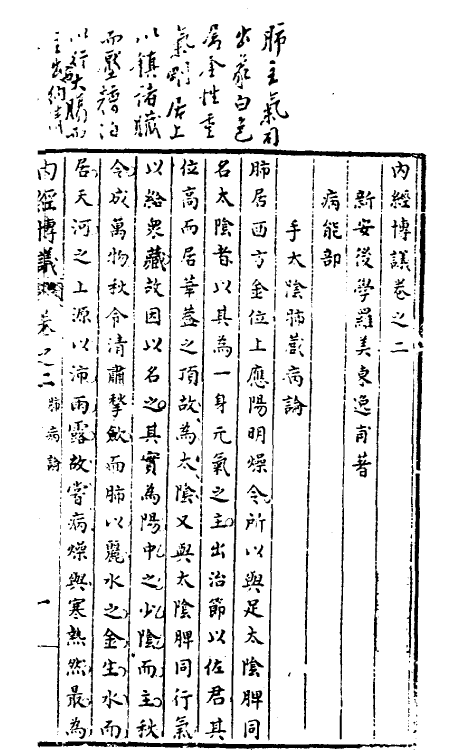 肺主氣司
出氣白色
屬金性重
氣剛居上
以鎮諸臟
而壓
以行大腸而
主出
內經博議卷之二
新安後學羅美東逸甫著
病能部
手太陰肺藏病論
肺居西方金位上應陽明燥令所以與足太陰脾同
名太陰者以其為一身元氣之主出治節以佐君其
位高而居華蓋之頂故為太陰又與太陰脾同行氣
以給衆藏故因以名之其實為陽中之少陰而主秋
令成萬物秋令清肅揫歛而肺以麗水之金生水而
居天河之上源以沛雨露故嘗病燥與寒熱然最為
內經博議 卷之二 肺病論 一